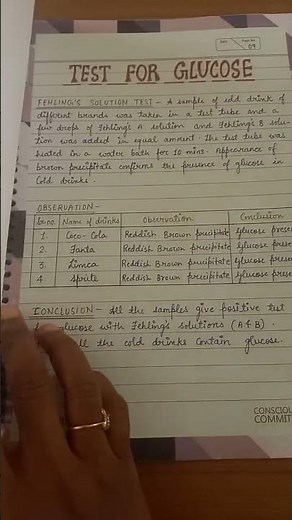 Date
Page No.
09
TEST FOR GLUCOSE
FEHLING'S SOLUTION TEST - A sample of cold drink of
different brands was taken in a test tube and a
few drops of Fehling's A solution and Fehling's B solu-
tion was added in equal amount. The test tube was
heated in a water bath for 10 mins. Appearance of
brown precipitate confirms the presence of glucose in
cold drinks.
OBSERVATION -
Sr.no. Name of drinks Observation Conclusion
1. Coco-Cola Reddish Brown precipitate glucose prese
2. Fanta Reddish Brown precipitate glucose prese
3. Limca Reddish Brown precipitate glucose prese
4. Sprite Reddish Brown precipitate glucose prese
CONCLUSION - All the samples give positive test
glucose with Fehling's solutions (A & B).
all the cold drinks contain glucose.
CONSCIOU
COMMITM